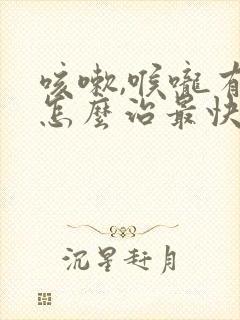 咳嗽,喉嚨有
怎麼治最快
沉星赶月